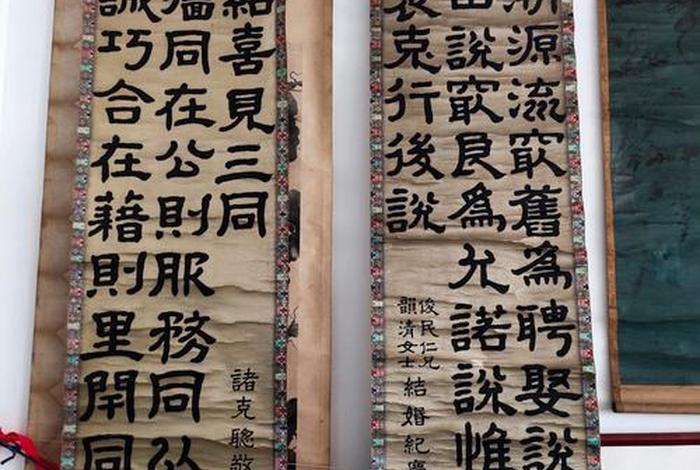 源流㝡舊為聘娶說
說㝡良為允諾說惟
克行後說
俊民仁兄
韻清女士
結婚紀慶
喜見三同
同在公則服務同以
誠巧合在藉則里閈同
諸克聰敬